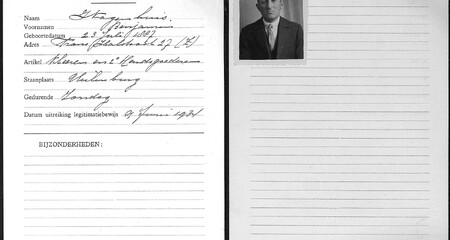 Naam Stagenhuis.
Voornamen Benjamin
Geboortedatum 23 Juli 1887
Adres Frans Halsstraat 27 (Z)
Artikel Kleeren en 2e Handsgoederen
Staanplaats Uilenburg
Gedurende Zondag
Datum uitreiking legitimatiebewijs 9 Juni 1934
BIJZONDERHEDEN: